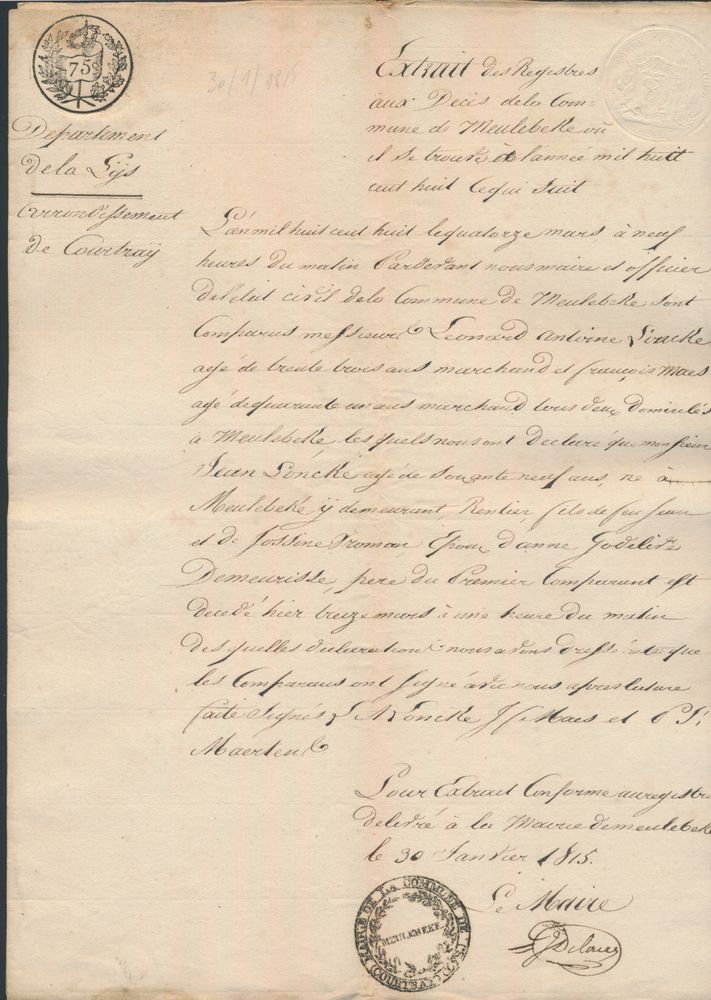 75c
30/1/1815
Extrait des Registres
aux Décès dela Com=
mune de Meulebeke où
il se trouve à l'année mil huit
cent huit ce qui suit
Département
de la Lÿs
arrondissement
de Courtraÿ
L'an mil huit cent huit le quatorze mars à neuf
heures du matin Pardevant nous maire et officier
de l'état civil dela Commune de Meulebeke sont
Comparus messieurs Leonard Antoine Loncke
agé de trente trois ans marchand et françois Maes
agé de quarante un ans marchand tous deux Domiciliés
à Meulebeke, lesquels nous ont Declaré que monsieur
Jean Loncke agé de soixante neuf ans, né à
Meulebeke ÿ demeurant, Rentier, fils de feu Jean
et de Jossine Vroman, Epoux d'anne Godelive
Demeurisse, pere du Premier Comparant est
decedé hier treize mars à une heure du matin
des quelles declarations nous avons dressé acte que
les Comparans ont signé avec nous apres lecture
faite Signés L A Loncke J f Maes et
Maertens
Pour Extrait Conforme au registre
delivré à la Mairie de meulebeke
le 30 Janvier 1815.
Le Maire
MAIRIE DE LA COMMUNE DE
MEULEBEKE